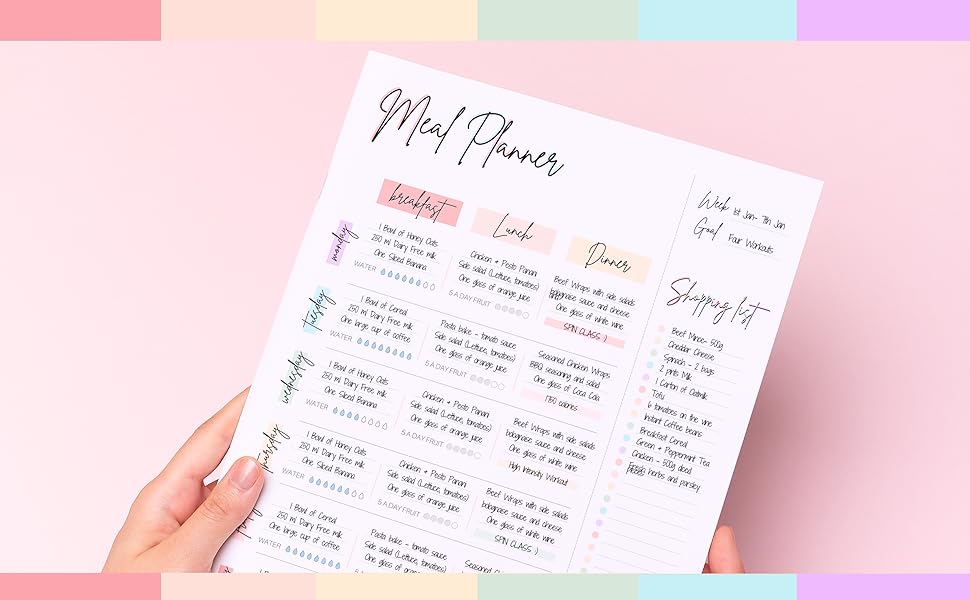 Meal Planner
Week 1st Jan- 7th Jan
Goal Four Workouts
breakfast
Lunch
Dinner
monday
1 Bowl of Honey Oats
250 ml Dairy Free milk
One Sliced Banana
WATER
Chicken + Pesto Panani
Side salad (Lettuce, tomatoes)
One glass of orange juice
5 A DAY FRUIT
Beef Wraps with side salads
bolognaise sauce and cheese
One glass of white wine
SPIN CLASS :)
tuesday
1 Bowl of Cereal
250 ml Dairy Free milk
One large cup of coffee
WATER
Pasta bake - tomato sauce
Side salad (Lettuce, tomatoes)
One glass of orange juice
5 A DAY FRUIT
Seasoned Chicken Wraps
BBQ seasoning and salad
One glass of Coca Cola
1780 calories
wednesday
1 Bowl of Honey Oats
250 ml Dairy Free milk
One Sliced Banana
WATER
Chicken + Pesto Panani
Side salad (Lettuce, tomatoes)
One glass of orange juice
5 A DAY FRUIT
Beef Wraps with side salads
bolognaise sauce and cheese
One glass of white wine
High Intensity Workout
thursday
1 Bowl of Honey Oats
250 ml Dairy Free milk
One Sliced Banana
WATER
Chicken + Pesto Panani
Side salad (Lettuce, tomatoes)
One glass of orange juice
5 A DAY FRUIT
Beef Wraps with side salads
bolognaise sauce and cheese
One glass of white wine
SPIN CLASS :)
1 Bowl of Cereal
250 ml Dairy Free milk
One large cup of coffee
WATER
Pasta bake - tomato sauce
Side salad (Lettuce, tomatoes)
One glass of orange juice
5 A DAY FRUIT
Seasoned
Shopping list
Beef Mince- 500g
Cheddar Cheese
Spinach - 2 bags
2 pints Milk
1 Carton of Oatmilk
Tofu
6 tomatoes on the vine
Instant Coffee beans
Breakfast Cereal
Green + Peppermint Tea
Chicken - 500g diced
Fresh herbs and parsley